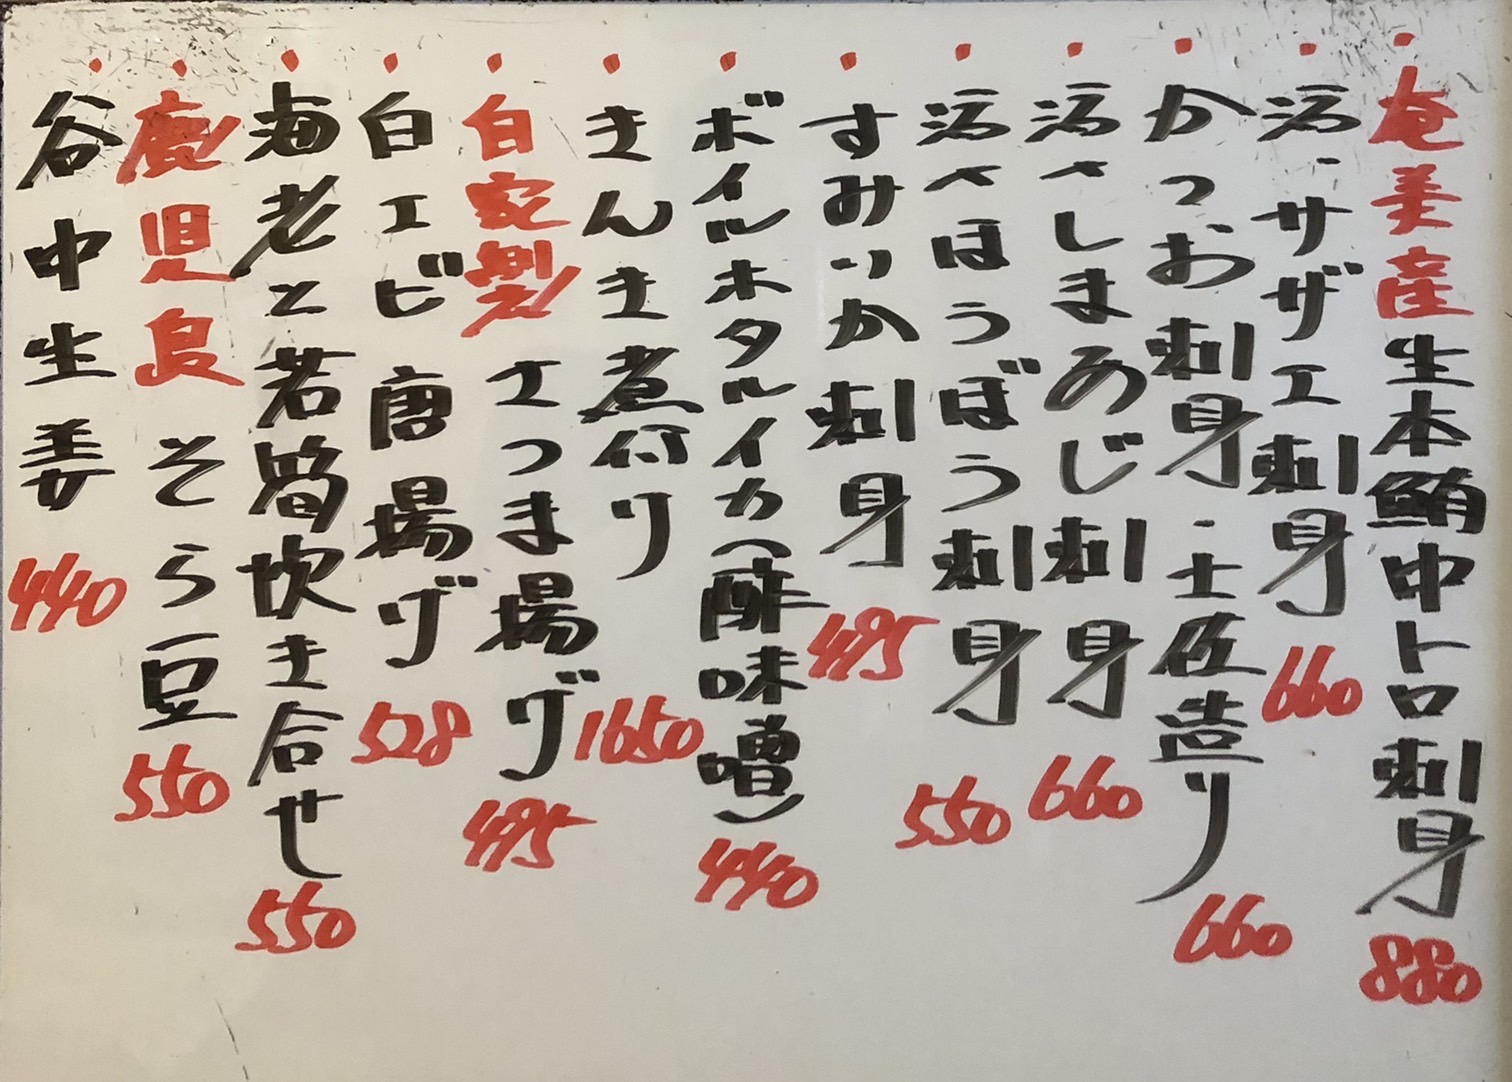 奄美産生本鮪中トロ刺身 880
活、サザエ刺身 660
かつお刺身・土佐造り 660
活〆しまあじ刺身 660
活〆ほうぼう刺身 550
すみいか刺身 495
ボイルホタルイカ(酢味噌) 440
きんき煮付り 1650
自家製さつま揚げ 495
白エビ唐揚げ 528
海老と若筍炊き合せ 550
鹿児島そら豆 550
谷中生姜 440